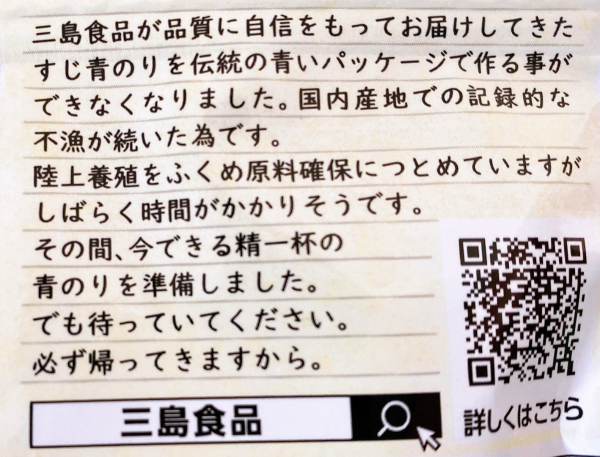 三島食品が品質に自信をもってお届けしてきた
すじ青のりを伝統の青いパッケージで作る事が
できなくなりました。国内産地での記録的な
不漁が続いた為です。
陸上養殖をふくめ原料確保につとめていますが
しばらく時間がかかりそうです。
その間、今できる精一杯の
青のりを準備しました。
でも待っていてください。
必ず帰ってきますから。
三島食品
詳しくはこちら